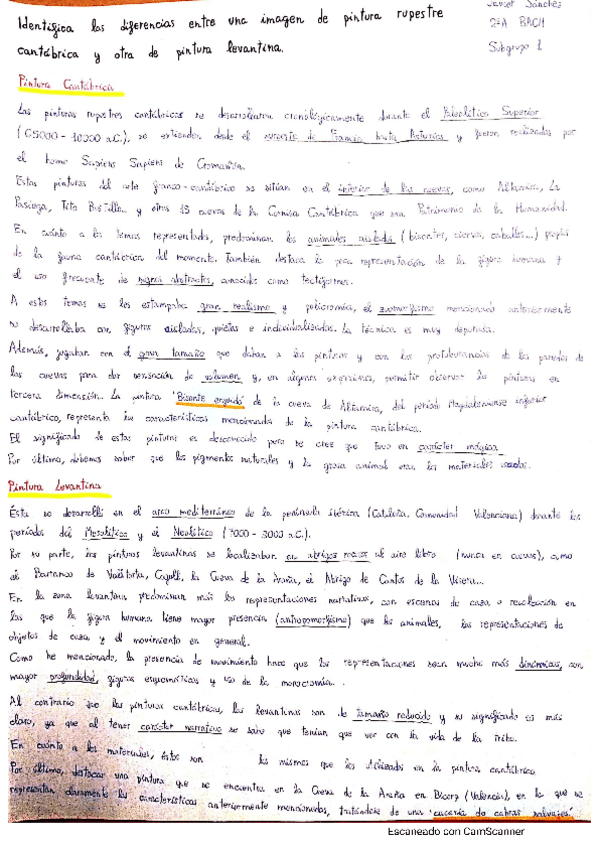 Identifica las diferencias entre una imagen de pintura rupestre
cantábrica y otra de pintura levantina.
Javier Sánchez
2ºA BACH
Subgrupo 1
Pintura Cantábrica
Las pinturas rupestres cantábricas se desarrollaron cronológicamente durante el Paleolítico Superior
(65000 - 10000 a.C.), se extienden desde el suroeste de Francia hasta Asturias y fueron realizadas por
el homo Sapiens Sapiens de Cromañón.
Estas pinturas del arte franco-cantábrico se sitúan en el interior de las cuevas, como Altamira, La
Pasiega, Tito Bustillo... y otras 15 cuevas de la Cornisa Cantábrica que son Patrimonio de la Humanidad.
En cuánto a los temas representados, predominan los animales aislados (bisontes, ciervos, caballos...) propios
de la fauna cantábrica del momento. También destaca la poca representación de la figura humana y
el uso frecuente de signos abstractos, conocidos como tectiformes.
A estos temas se les estampaba gran realismo y policromía, el zoomorfismo mencionado anteriormente
se desarrollaba con figuras aisladas, quietas e individualizadas. La técnica es muy depurada.
Además, jugaban con el gran tamaño que daban a las pinturas y con las protuberancias de las paredes de
las cuevas para dar sensación de volumen y, en algunas ocasiones, permitir observar las pinturas en
tercera dimensión. La pintura 'Bisonte encogido' de la cueva de Altamira, del período Magdaleniense inferior
cantábrico, representa las características mencionadas de la pintura cantábrica.
El significado de estas pinturas es desconocido pero se cree que tuvo un carácter mágico.
Por último, debemos saber que los pigmentos naturales y la grasa animal eran los materiales usados.
Pintura Levantina
Ésta se desarrolló en el arco mediterráneo de la península ibérica (Cataluña, Comunidad Valenciana) durante los
períodos del Mesolítico y el Neolítico (7000 - 3000 a.C.).
Por su parte, las pinturas levantinas se localizaban en abrigos rocosos al aire libre (nunca en cuevas), como
el Barranco de Valltorta, Cogull, la Cueva de la Araña, el Abrigo de Cantos de la Visera...
En la zona levantina predominan más las representaciones narrativas, con escenas de caza o recolección en
las que la figura humana tiene mayor presencia (antropomorfismo) que los animales, las representaciones de
objetos de caza y el movimiento en general.
Como he mencionado, la presencia de movimiento hace que las representaciones sean mucho más dinámicas, con
mayor profundidad, figuras esquemáticas y uso de la monocromía.
Al contrario que las pinturas cantábricas, las levantinas son de tamaño reducido y su significado es más
claro, ya que al tener carácter narrativo se sabe que tenían que ver con la vida de la tribu.
En cuánto a los materiales, éstos son los mismos que los utilizados en la pintura cantábrica.
Por último, destacar una pintura que se encuentra en la Cueva de la Araña en Bicorp (Valencia), en la que se
representan claramente las características anteriormente mencionadas, tratándose de una 'cacería de cabras salvajes'.
Escaneado con CamScanner